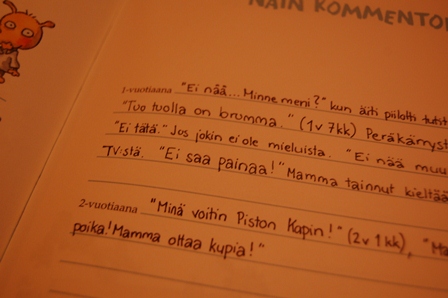 NÄIN KOMMENTO
1-vuotiaana "Ei nää... Minne meni?" kun äiti piilotti
"Tuo tuolla on brumma." (1v 7kk) Peräkärryst
"Ei tätä." Jos jokin ei ole mieluista. "Ei nää muu
TV:stä. "Ei saa painaa!" Mamma tainnut kieltää
2-vuotiaana "Minä voitin Piston Kapin!" (2v 1kk), "Ma
poika! Mamma ottaa kupia!"